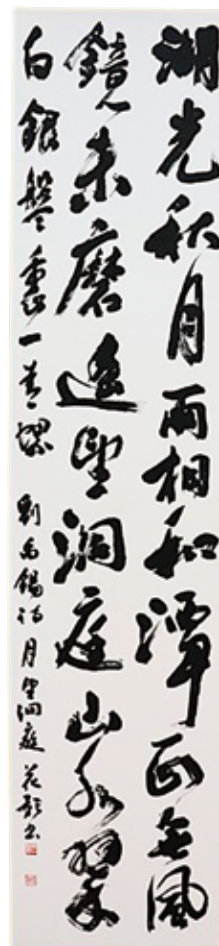 湖光秋月兩相和潭面無風
鏡未磨遥望洞庭山水翠
白銀盤裏一青螺 劉禹錫詩 月望洞庭 花影书